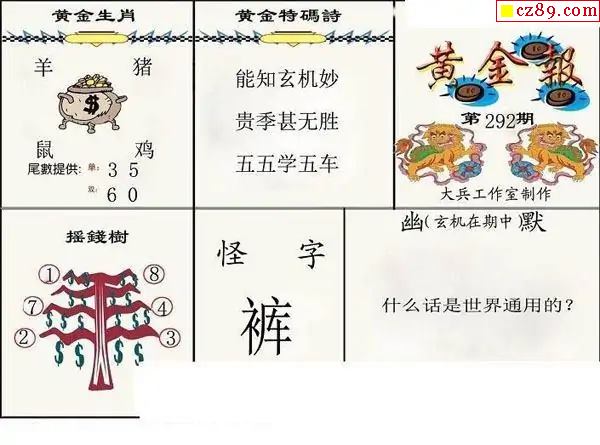 cz89.com
黄金生肖
羊 猪
$
鼠 鸡
尾數提供: 单: 3 5
双: 6 0
黄金特碼詩
能知玄机妙
贵季甚无胜
五五学五车
黄金報
第292期
大兵工作室制作
摇錢樹
① ⑧
⑦ ④
② ③
$ $ $ $ $ $
怪 字
裤
幽(玄机在期中)默
什么话是世界通用的?